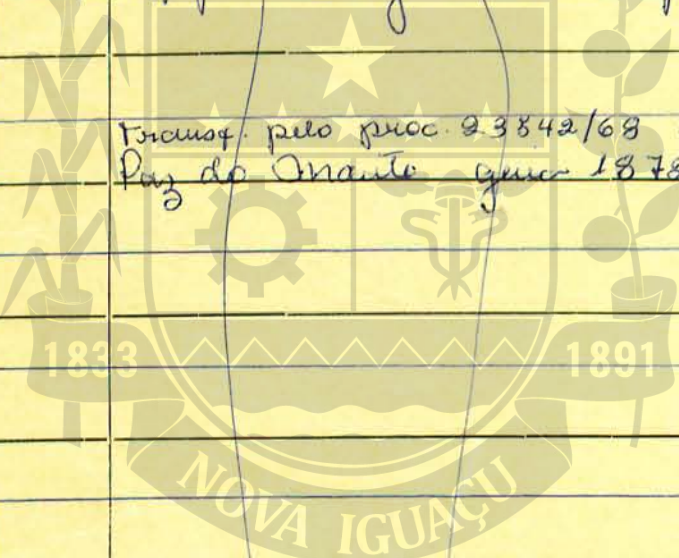 Transf. pelo proc. 23542/68
Paz do guia 1878
1833 1891
NOVA IGUAÇU